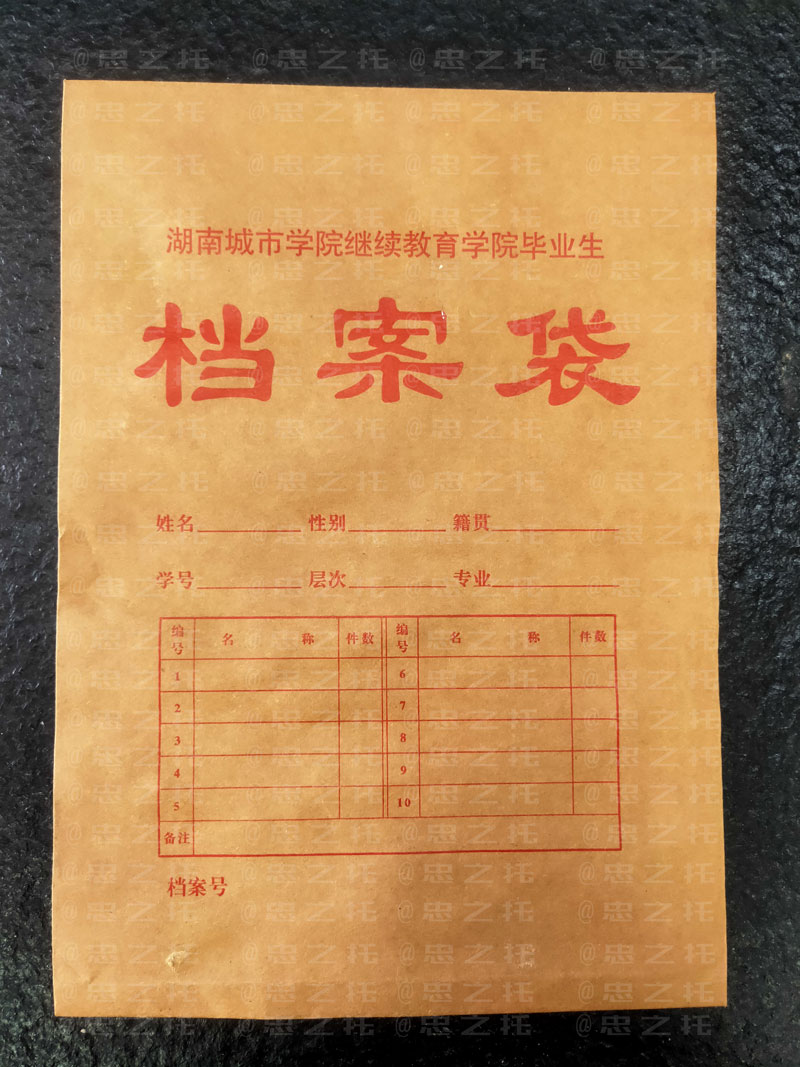 湖南城市学院继续教育学院毕业生
档案袋
姓名 性别 籍贯
学号 层次 专业
编号 名 称 件数 编号 名 称 件数
1 6
2 7
3 8
4 9
5 10
备注
档案号
@忠之托